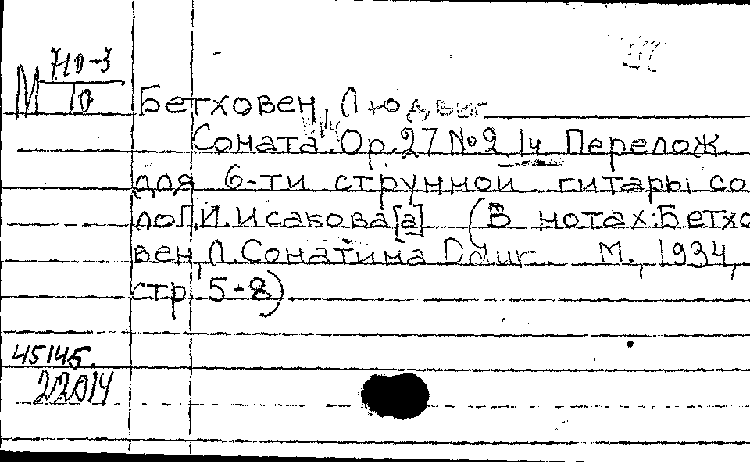 М 710-3
10
Бетховен, Людвиг
Соната. Ор.27 №2 1ч Перелож.
для 6-ти струнной гитары со
ло П.И.Исакова[а] (В нотах:Бетхо
вен,Л.Сонатина Ddur. М., 1934,
стр. 5-8)
45145.
22014